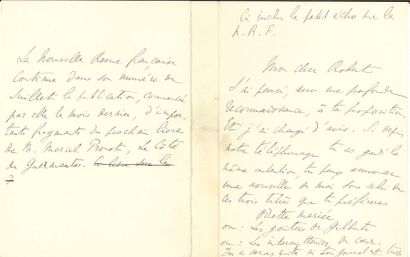 La Nouvelle Revue française
continue dans son numéro de
Juillet la publication, commencée
par elle le mois dernier, d'impor-
tants fragments du prochain livre
de M. Marcel Proust, Le Côté
de Guermantes.
Ci inclus le petit écho sur la
N.R.F.
Mon cher Robert
J'ai pensé, avec une profonde
reconnaissance, à ta proposition.
Et j'ai changé d'avis. Si depuis
notre téléphonage tu es guidé la
même intention, tu peux annoncer
une nouvelle de moi sous celui de
ces trois titres que tu préfèreras
Odette mariée
ou : Les goûters de Gilberte
ou : Les intermittences du cœur.